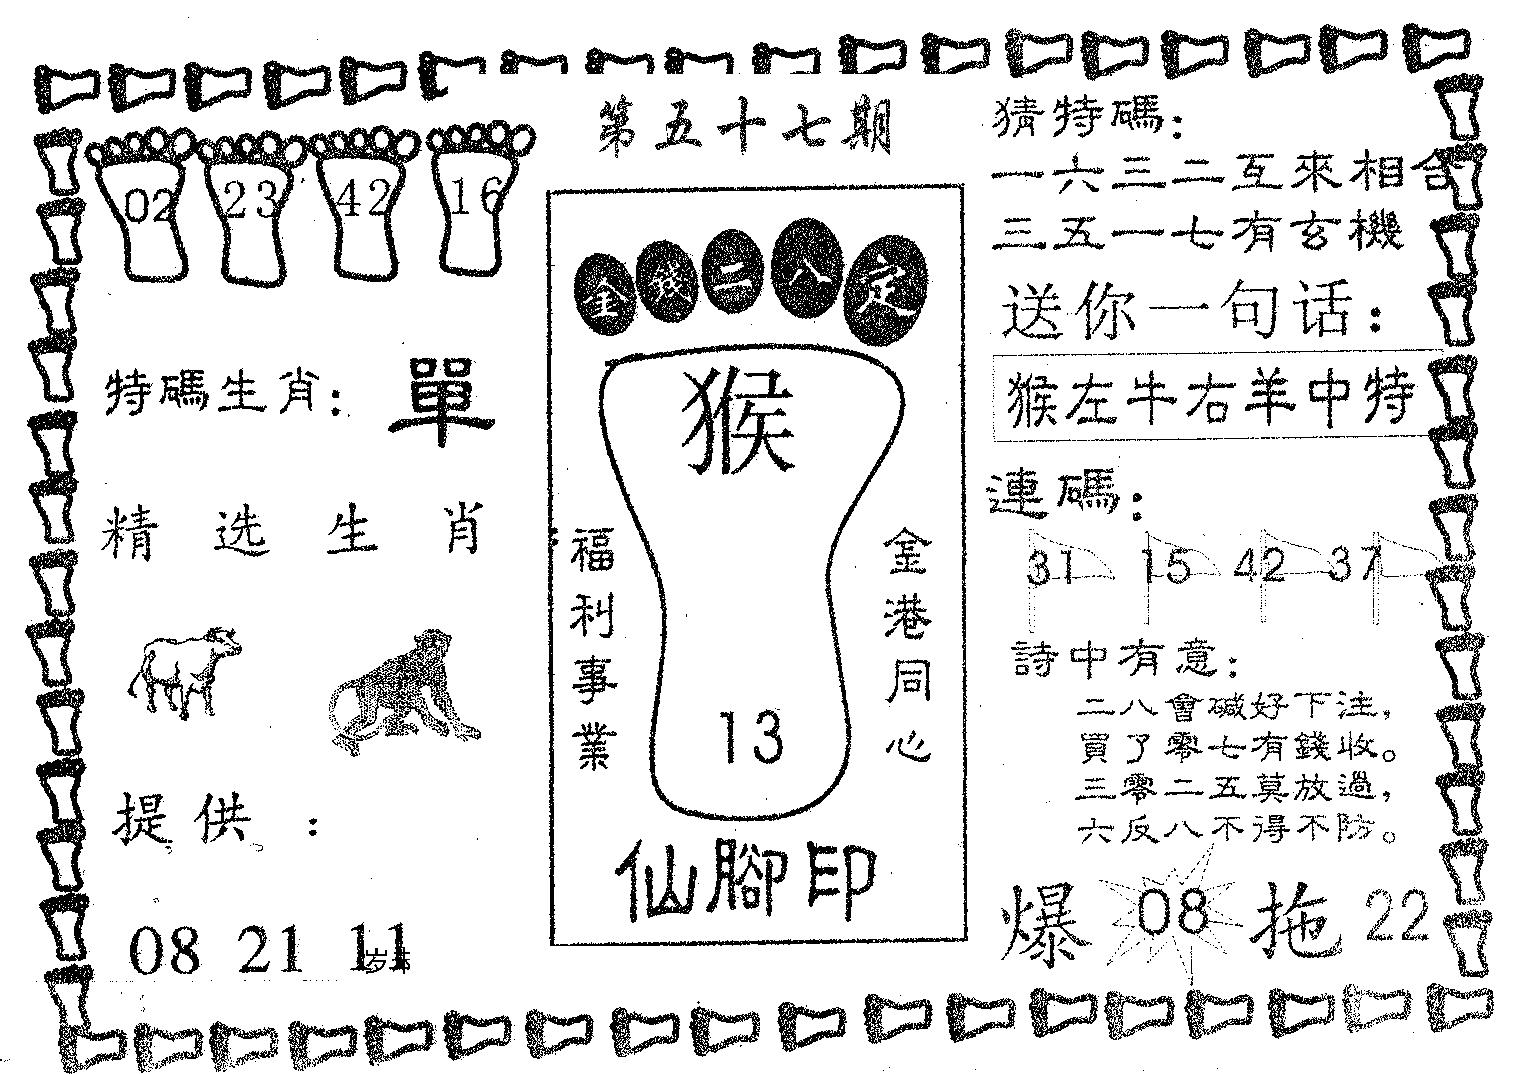 第五十七期
02 23 42 16
特碼生肖：單
精选生肖
提供：
08 21 11
金錢二八定
猴
福利事業
金港同心
13
仙腳印
猜特碼：
一六三二互來相合
三五一七有玄機
送你一句话：
猴左牛右羊中特
連碼：
31 15 42 37
詩中有意：
二八會碱好下注，
買了零七有錢收。
三零二五莫放過，
六反八不得不防。
爆 08 拖 22